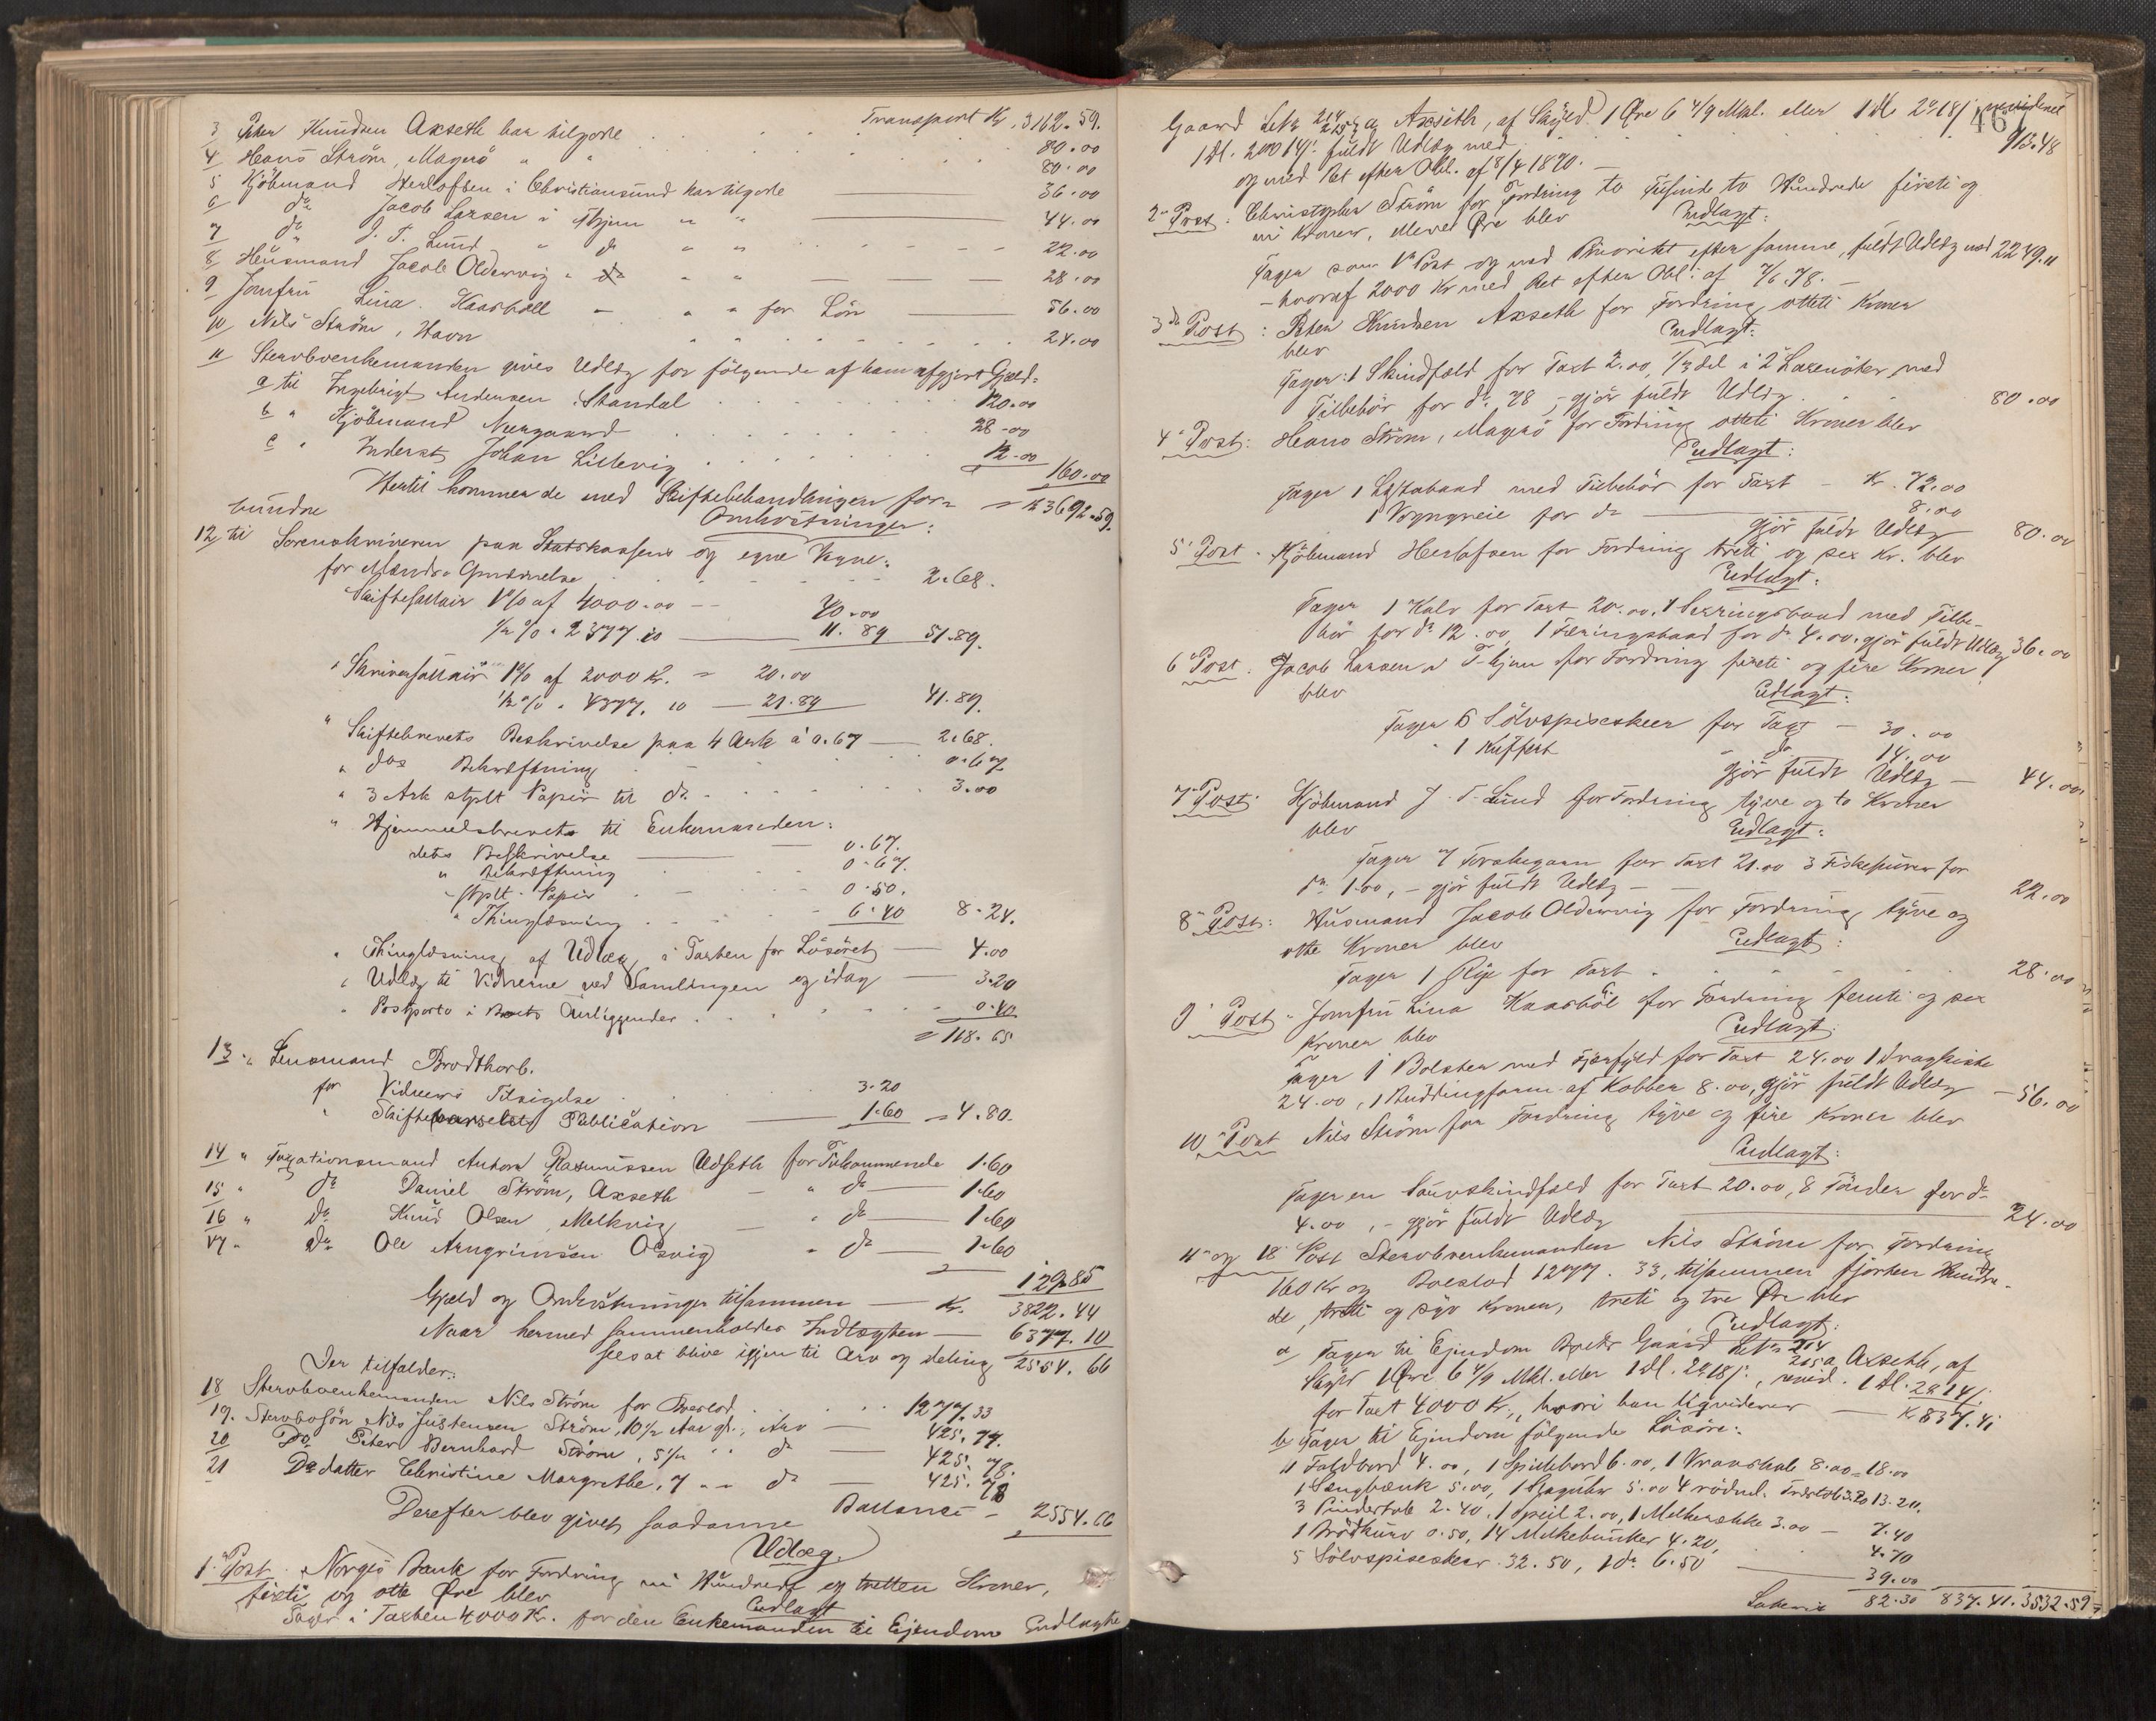 Transport Kr. 3162.59.
3 Peter Knudsen Axseth har tilgode 80.00
4 Hans Ström, Magerö " " 80.00
5 Kjöbmand Herlofsen i Christiansund har tilgode 36.00
6 do Jacob Larsen i Thjem " " 44.00
7 do J. T. Lund " do " " 22.00
8 Husmand Jacob Oldervig " do " " 28.00
9 Jomfru Lina Kaasböll " " for Lön 56.00
10 Nils Ström, Havn " " 24.00
11 Stervboenkemanden gives Udlæg for fölgende af ham afgjort Gjæld:
a til Ingebrigt Andersen Standal 120.00
b " Kjöbmand Neergaard 28.00
c " Inderst Johan Lillevig 12.00
160.00
Hertil kommer de med Skiftebehandlingen for- = Kr 3692.59.
bundne Omkostninger:
12 til Sorenskriveren paa Statskassens og egne Vegne:
for Mænds Opnævnelse 2.68.
Skiftesallair 1% af 4000.00 40.00
1/2 % " 2377.10 11.89 51.89.
" Skriversallair 1% af 2000 Kr. = 20.00
1/2 % " 4377.10 21.89 41.89.
" Skiftebrevets Beskrivelse paa 4 Ark à 0.67 2.68.
" dos Bekræftning 0.67
" 3 Ark stplt Papir til do 3.00
" Hjemmelsbrevets til Enkemanden:
dets Beskrivelse 0.67.
" Bekræftning 0.67.
" stplt. Papir 0.50.
" Thinglæsning 6.40 8.24.
" Thinglæsning af Udlæg i Taxten for Lösöret 4.00
" Udlæg til Vidnerne ved Samlingen og idag 3.20
" Postporto i Boets Anliggender 0.40
= 118.65
13 " Lensmand Brodtkorb.
for Vidners Tilsigelse 3.20
" Skiftevarselets Publication 1.60 = 4.80.
14 " Taxationsmand Anton Rasmussen Udseth for Tilkommende 1.60
15 " do Daniel Ström, Axseth " do 1.60
16 " do Knud Olsen Melkvig " do 1.60
17 " do Ole Arngrimsen Olsvig " do 1.60
129.85
Gjæld og Omkostninger tilsammen Kr. 3822.44
Naar hermed sammenholdes Indtægten 6377.10
sees at blive igjen til Arv og deling 2554.66
Der tilfalder:
18 Stervboenkemanden Nils Ström for Boeslod 1277.33
19. Stervbosön Nils Justensen Ström, 10 1/2 Aar gl., Arv 425.77.
20 Do Peter Bernhard Ström, 5 1/2 " " do 425.78.
21 Do datter Christine Margrethe, 7 " " do 425.78
Ballance = 2554.66
Derefter blev givet saadanne
Udlæg.
1. Post. Norges Bank for Fordring ni Hundrede og tretten Kroner,
firti og otte Øre blev Udlagt
Tager i Taxten 4000 Kr. for den Enkemanden til Ejendom Udlagte
467
Gaard Lb No 214/215a Axseth, af Skyld 1 Øre 6 4/9 Mkl. eller 1 dl. 2o 18 s. revideret
1 dl. 2 o 14 s. fuldt Udlæg med 913.48
og med Ret efter Obl. af 8/4 1870.
2. Post: Christopher Ström for Fordring to Tusinde to Hundrede firti og
ni Kroner, elleve Øre blev Udlagt:
Tager som 1. Post og med Prioritet efter samme, fuldt Udlæg med 2249.11
hvoraf 2000 Kr med Ret efter Obl. af 7/6 78.
3de Post: Peter Knudsen Axseth for Fordring otteti Kroner
blev Udlagt:
Tager: 1 Skindfæld for Taxt 2.00, 1/2 del i 2 Laxenöter med
Tilbehör for do 78, gjör fuldt Udlæg 80.00
4. Post: Hans Ström, Magerö for Fordring otteti Kroner blev
Udlagt:
Tager 1 Lystbaad med Tilbehör for Taxt Kr. 72.00
1 Vogngreie for do 8.00
gjör fuldt Udlæg 80.00
5. Post. Kjöbmand Herlofsen for Fordring treti og sex Kr. blev
Udlagt:
Tager 1 Kalv for Taxt 20.00, 1 Sexringsbaad med Tilbe-
hör for do 12.00 1 Færingsbaad for do 4.00, gjör fuldt Udlæg 36.00
6. Post. Jacob Larsen i T-hjem for Fordring firti og fire Kroner
blev Udlagt:
Tager 6 Sölvspiseskeer for Taxt 30.00
" 1 Kuffert " do 14.00
gjör fuldt Udlæg 44.00
7. Post. Kjöbmand J. T. Lund for Fordring tyve og to Kroner
blev Udlagt:
Tager 7 Torskegarn for Taxt 21.00 3 Fiskesnörer for
do 1.00, gjör fuldt Udlæg 22.00
8. Post: Husmand Jacob Oldervig for Fordring tyve og
otte Kroner blev Udlagt:
Tager 1 Rye for Taxt 28.00
9. Post. Jomfru Lina Kaasböl for Fordring femti og sex
Kroner blev Udlagt:
Tager 1 Bolster med Fjærfyld for Taxt 24.00 1 Dragkiste
24.00, 1 Buddingform af Kobber 8.00, gjör fuldt Udlæg 56.00
10. Post Nils Ström for Fordring tyve og fire Kroner blev
Udlagt:
Tager en Saueskindfæld for Taxt 20.00, 8 Tönder for do
4.00, gjör fuldt Udlæg 24.00
11. og 18. Post Stervboenkemanden Nils Ström for Fordring
160 Kr og Boeslod 1277.33, tilsammen fjorten Hundre-
de, treti og syv Kroner, treti og tre Øre blev
Udlagt:
a Tager til Ejendom Boets Gaard Lb No 214/215a Axseth, af
Skyld 1 Øre 6 4/9 Mkl. eller 1 Dl. 2o 18 s., revid. 1 Dl. 2o 14 s.
for Taxt 4000 Kr., hvori han liqviderer Kr 837.41
b Tager til Ejendom fölgende Lösöre:
1 Foldbord 4.00, 1 Spillebord 6.00, 1 Vraaskab 8.00 = 18.00
1 Sengbænk 5.00, 1 Slaguhr 5.00 4 rödml. Træstole 3.20 13.20.
3 Pindestole 2.40, 1 Speil 2.00, 1 Melkerække 3.00 7.40
1 Brödkurv 0.50, 14 Melkebunker 4.20, 4.70
5 Sölvspiseskeer 32.50, 1 do 6.50 39.00
Lateris 82.30 837.41. 3532.59